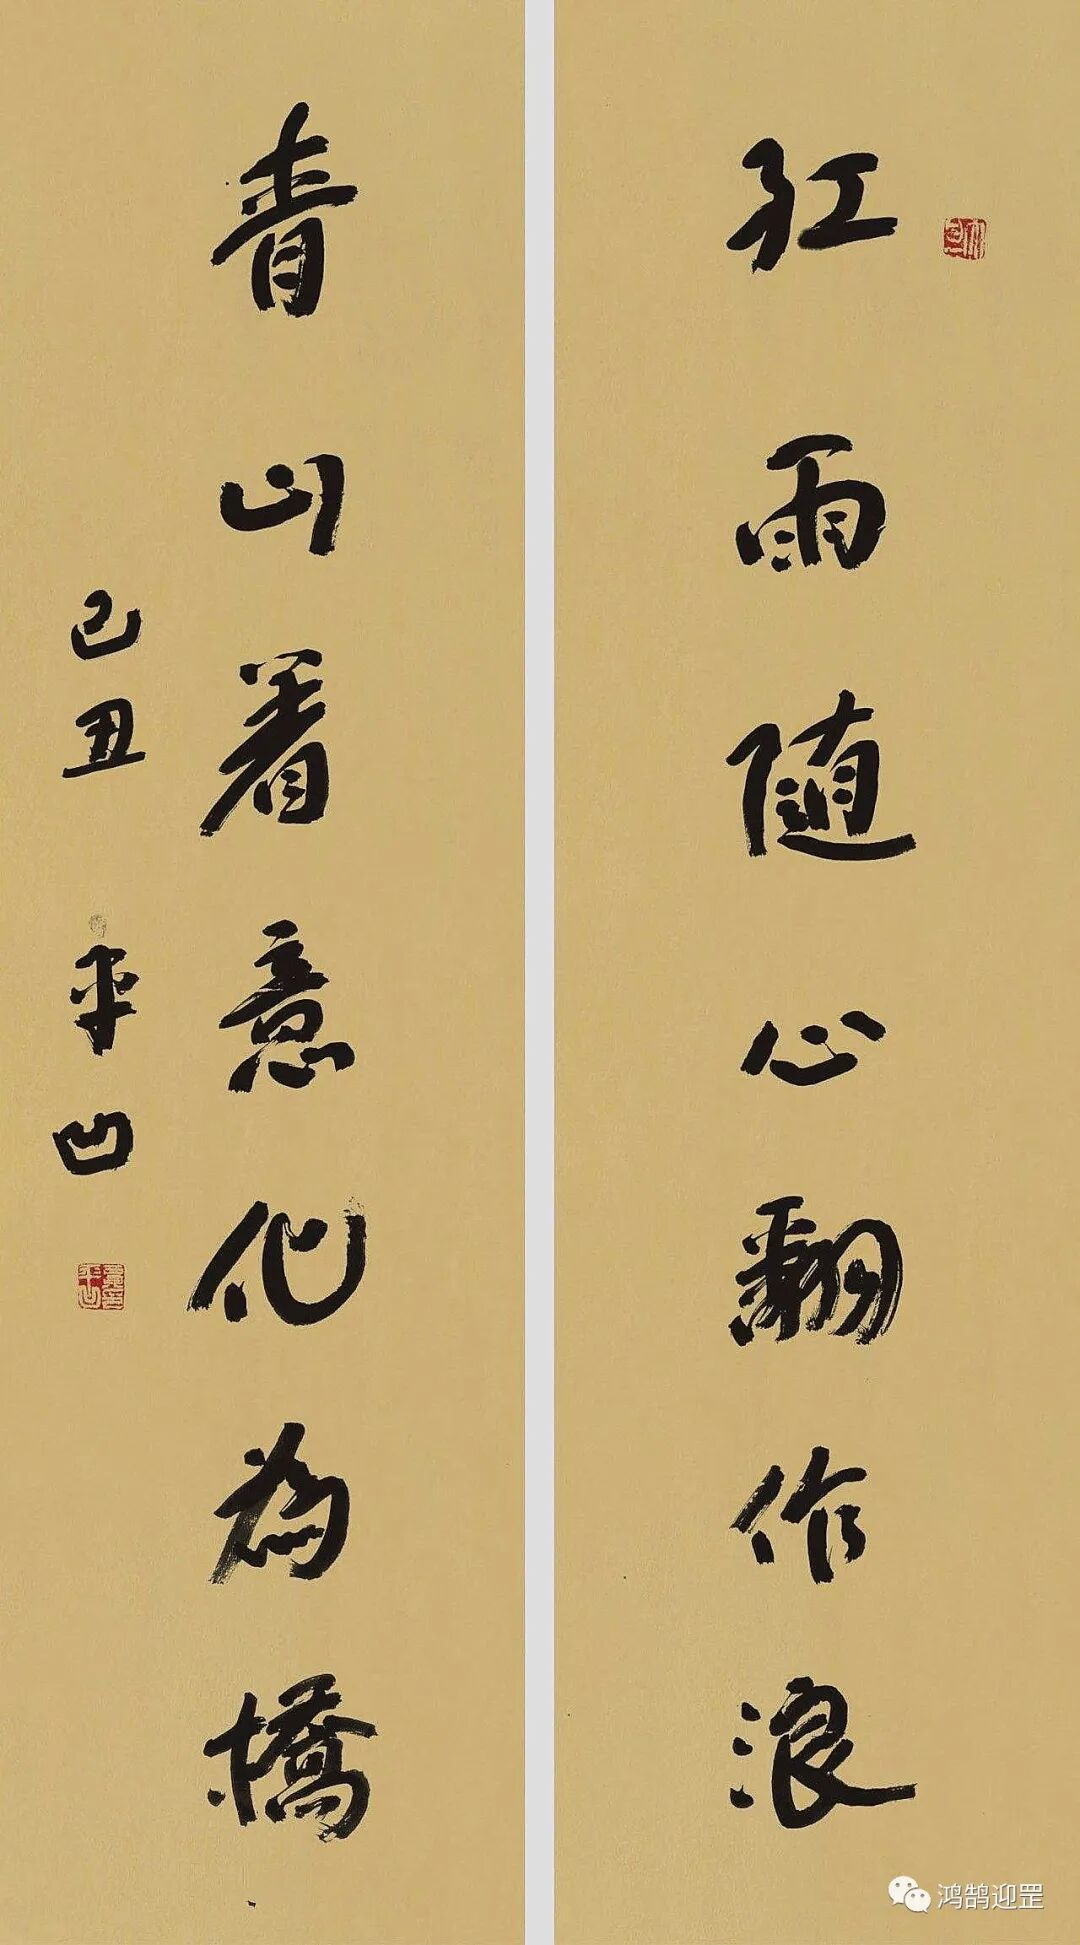 红雨随心翻作浪
青山着意化為橋
己丑 平凹
鸿鹄迎罡